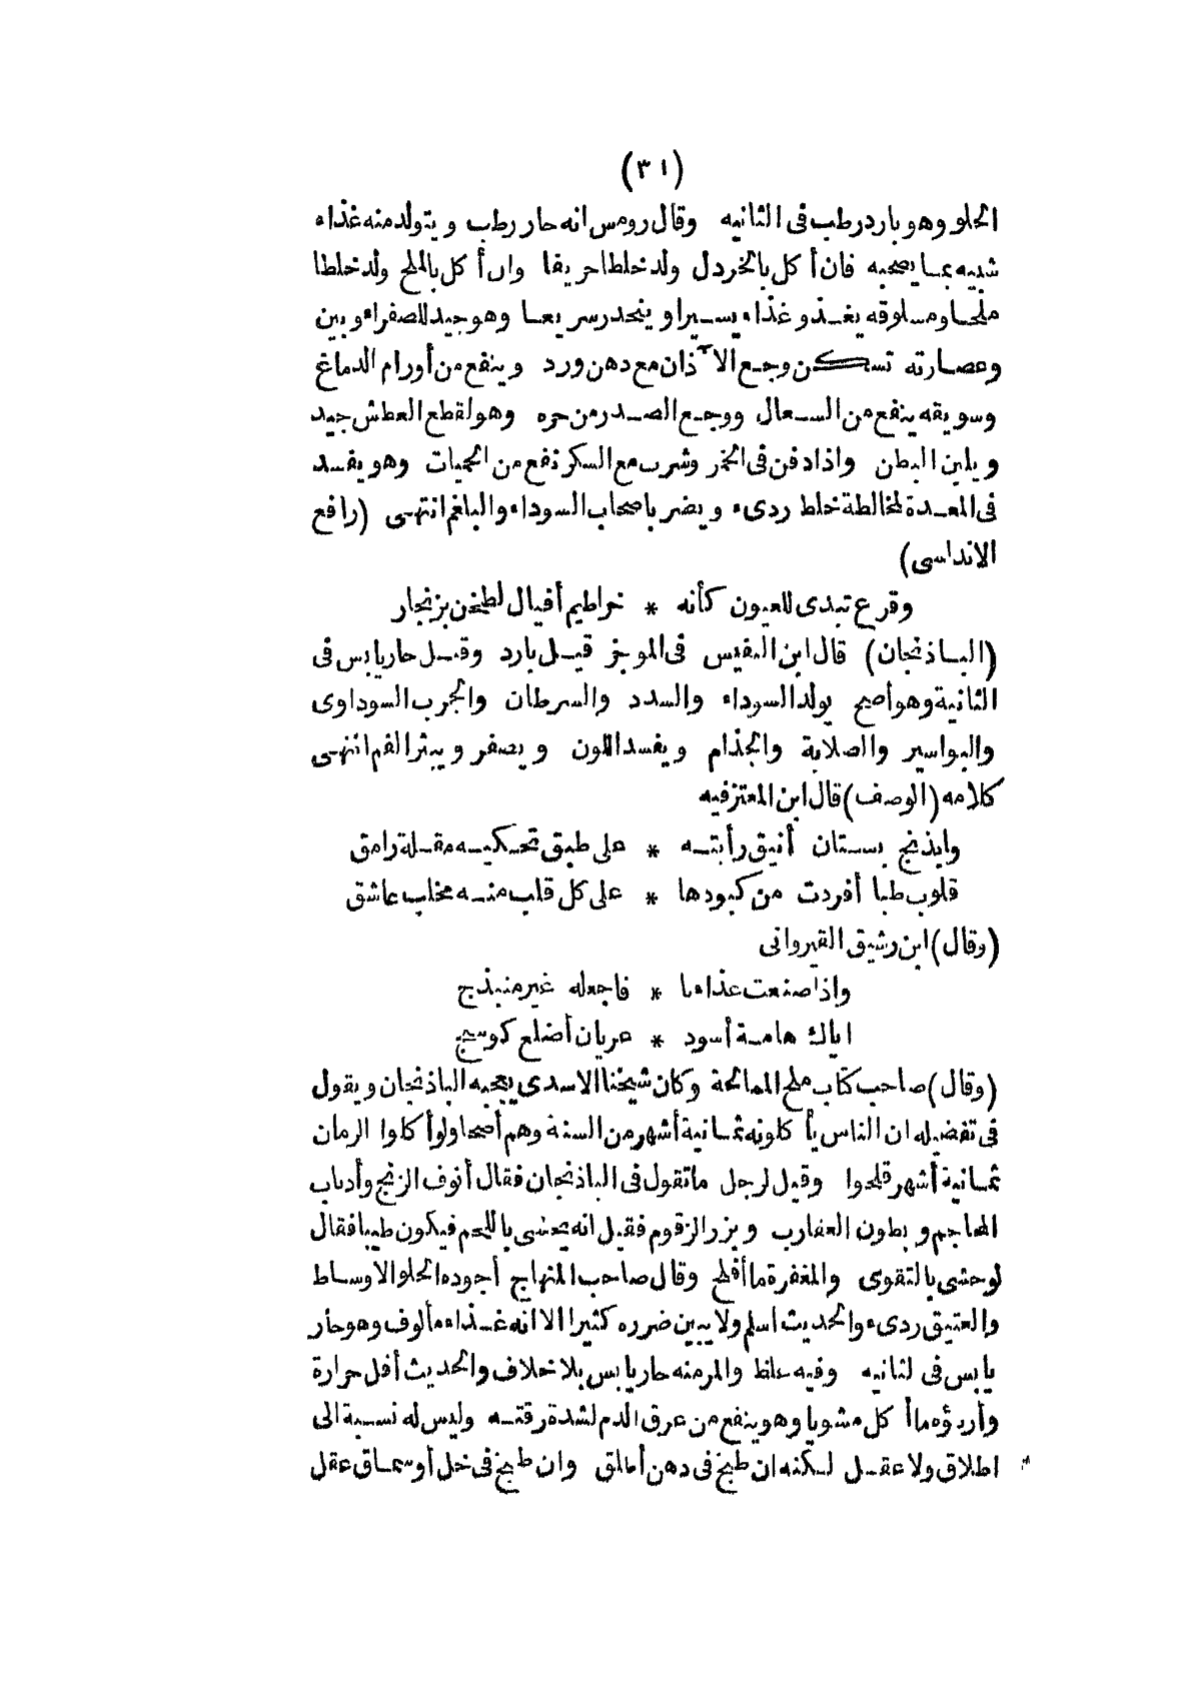 (٣١)
الحلو وهو بارد رطب فى الثانيه وقال رومس انه حار رطب ويتولد منه غذاء
شبيه بما يصحبه فان أكل بالخردل ولد خلطا حريفا وان أكل بالملح ولد خلطا
ملحا ومسلوقه يغذو غذاء يسيرا وينحدر سريعا وهو جيد للصفراء وبين
وعصارته تسكن وجع الآذان مع دهن ورد وينفع من أورام الدماغ
وسويقه ينفع من السعال ووجع الصدر من حره وهو لقطع العطش جيد
ويلين البطن واذا دفن فى الجمر وشرب مع السكر نفع من الحميات وهو يفسد
فى المعدة لمخالطة خلط ردىء ويضر باصحاب السوداء والبلغم انتهى (رافع
الاندلسى)
وقرع تبدى للعيون كأنه * خراطيم أفيال لطخن بزنجار
(الباذنجان) قال ابن النفيس فى الموجز قيل بارد وقيل حار يابس فى
الثانية وهو أصح يولد السوداء والسدد والسرطان والجرب السوداوى
والبواسير والصلابة والجذام ويفسد اللون ويصفر ويبثر الفم انتهى
كلامه (الوصف) قال ابن المعتز فيه
وابذنج بستان أنيق رأيته * على طبق تحكيه مقلة رامق
قلوب ظبا أفردت من كبودها * على كل قلب منه مخلب عاشق
(وقال) ابن رشيق القيروانى
واذا صنعت غذاءنا * فاجعله غير مبذنج
اياك هامة أسود * عريان أصلع كوسج
(وقال) صاحب كتاب ملح الممالحة وكان شيخنا الاسدى يعجبه الباذنجان ويقول
فى تفضيله ان الناس يأكلونه ثمانية أشهر من السنة وهم أصحا ولو أكلوا الرمان
ثمانية أشهر فلحوا وقيل لرجل ما تقول فى الباذنجان فقال أنوف الزنج وأذناب
المحاجم وبطون العقارب وبزر الزقوم فقيل انه يحشى باللحم فيكون طيبا فقال
لو حشى بالتقوى والمغفرة ما أفلح وقال صاحب المنهاج أجوده الحلو الاوساط
والعتيق ردىء والحديث اسلم ولا يبين ضرره كثيرا الا انه غذاء مألوف وهو حار
يابس فى لثانيه وفيه غلظ والمر منه حار يابس بلا خلاف والحديث أقل حرارة
وأردؤه ما أكل مشويا وهو ينفع من عرق الدم لشدة رقته وليس له نسبة الى
اطلاق ولا عقل لكنه ان طبخ فى دهن أطلق وان طبخ فى خل أو سماق عقل